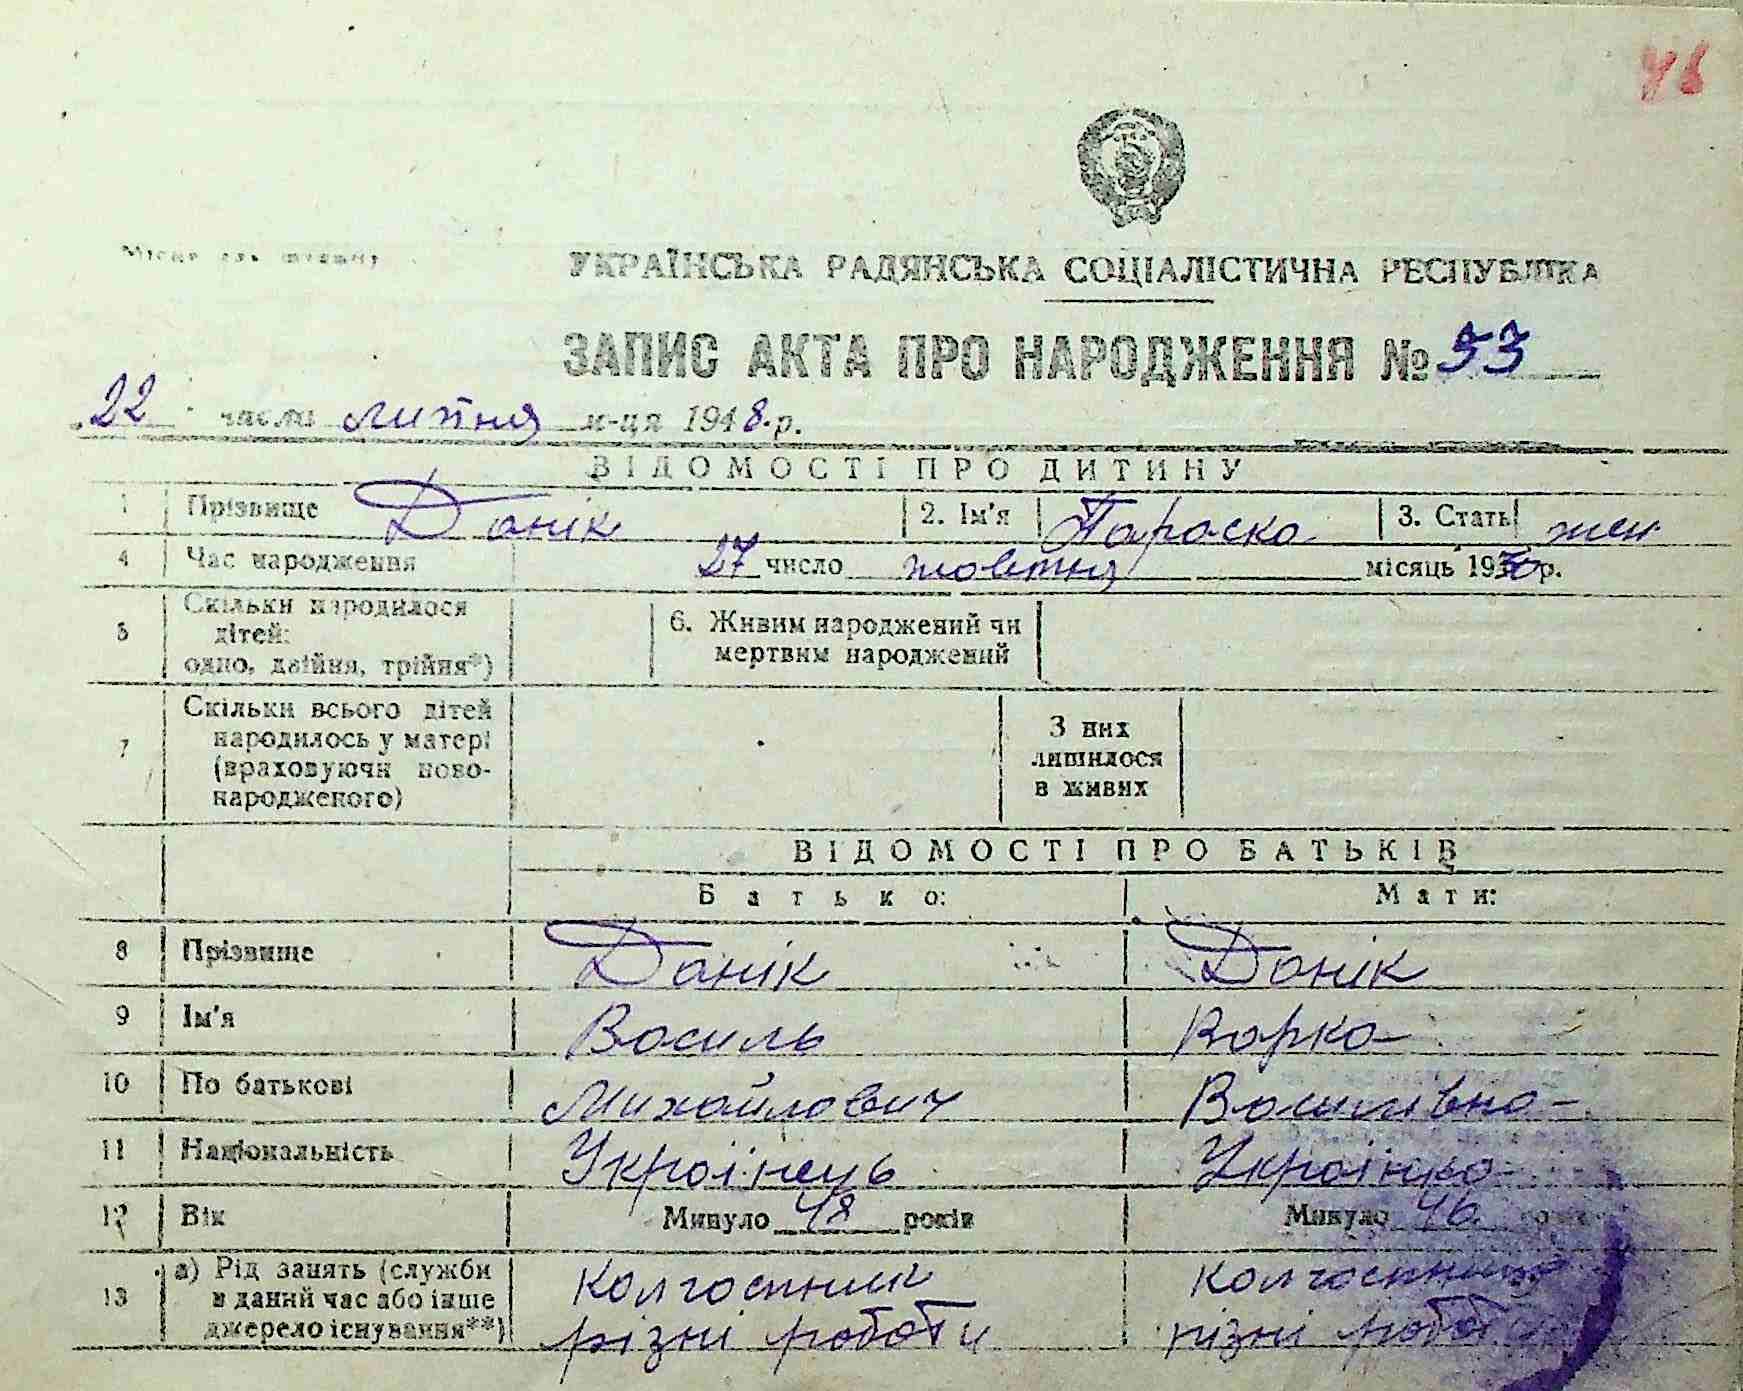 46
Місце для штампу
УКРАЇНСЬКА РАДЯНСЬКА СОЦІАЛІСТИЧНА РЕСПУБЛІКА
ЗАПИС АКТА ПРО НАРОДЖЕННЯ № 53
22 числа липня м-ця 1948 р.
ВІДОМОСТІ ПРО ДИТИНУ
1 Прізвище Данік 2. Ім'я Параска 3. Стать жен
4 Час народження 27 число жовтня місяць 193 р.
5 Скільки народилося дітей: одно, двійня, трійня*) 6. Живим народжений чи мертвим народжений
7 Скільки всього дітей народилось у матері (враховуючи ново-народженого) З них лишилося в живих
ВІДОМОСТІ ПРО БАТЬКІВ
Батько: Мати:
8 Прізвище Данік Данік
9 Ім'я Василь Варка
10 По батькові Михайлович Василівна
11 Національність Українець Українка
12 Вік Минуло 48 років Минуло 46 років
13 а) Рід занять (служби в даний час або інше джерело існування**) Колгоспник різні роботи Колгоспниця різні роботи